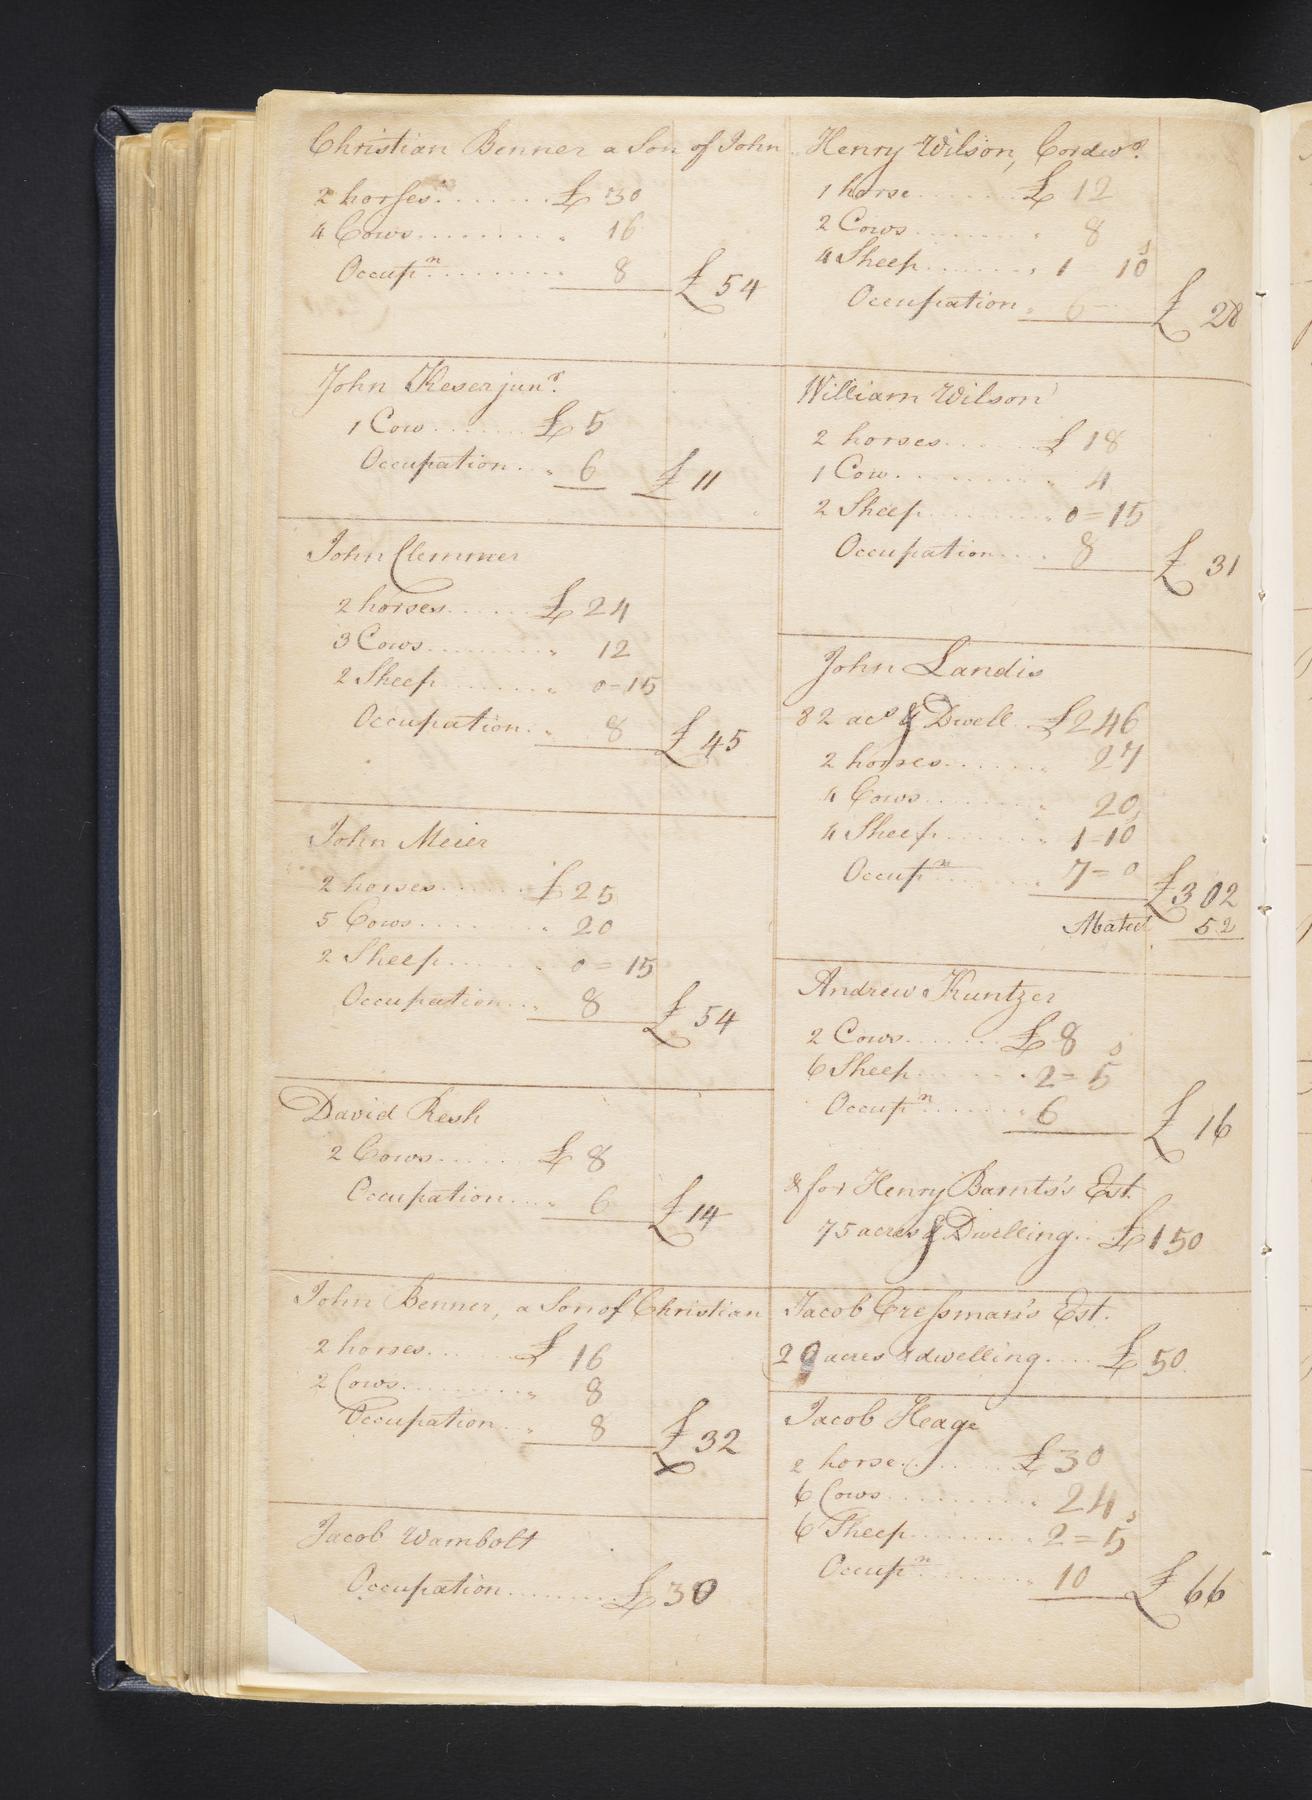 Christian Benner a Son of John
2 horses . . . . . . . £ 30
4 Cows . . . . . . . . . 16
Occupn . . . . . . . . . 8 £ 54
John Keser junr.
1 Cow . . . . . . £ 5
Occupation . . 6 £ 11
John Clemmer
2 horses . . . . . . £ 24
3 Cows . . . . . . . . 12
2 Sheep . . . . . . . 0=15
Occupation . 8 £ 45
John Meier
2 horses . . . . . . £ 25
5 Cows . . . . . . . . 20
2 Sheep . . . . . . 0=15
Occupation . . 8 £ 54
David Resh
2 Cows . . . . . . £ 8
Occupation . . . 6 £ 14
John Benner, a Son of Christian
2 horses . . . . . £ 16
2 Cows . . . . . . . . 8
Occupation . . 8 £ 32
Jacob Wambolt
Occupation . . . . . . . £ 30
Henry Wilson, Cordwr.
1 horse . . . . . . . £ 12
2 Cows . . . . . . . . 8 s
4 Sheep . . . . . . . 1 10
Occupation . 6 £ 28
William Wilson
2 horses . . . . . £ 18
1 Cow . . . . . . . . . 4
2 Sheep . . . . . . . 0=15
Occupation . . . 8 £ 31
John Landis
82 acs & Dwell . £ 246
2 horses . . . . . . 27
4 Cows . . . . . . . 20
4 Sheep . . . . . . 1-10
Occupn . . . . . . 7=0 £ 302
Abated 52
Andrew Kuntzer
2 Cows . . . . . . £ 8 s
6 Sheep . . . . . . . 2=5
Occupn . . . . . . 6 £ 16
& for Henry Barnts's Est.
75 acres & Dwelling . . £ 150
Jacob Cressman's Est.
20 acres & dwelling . . . . £ 50
Jacob Heage
2 horses . . . . . £ 30
6 Cows . . . . . . . . 24 s
6 Sheep . . . . . . . 2=5
Occupn . . . . . . . 10 £ 66